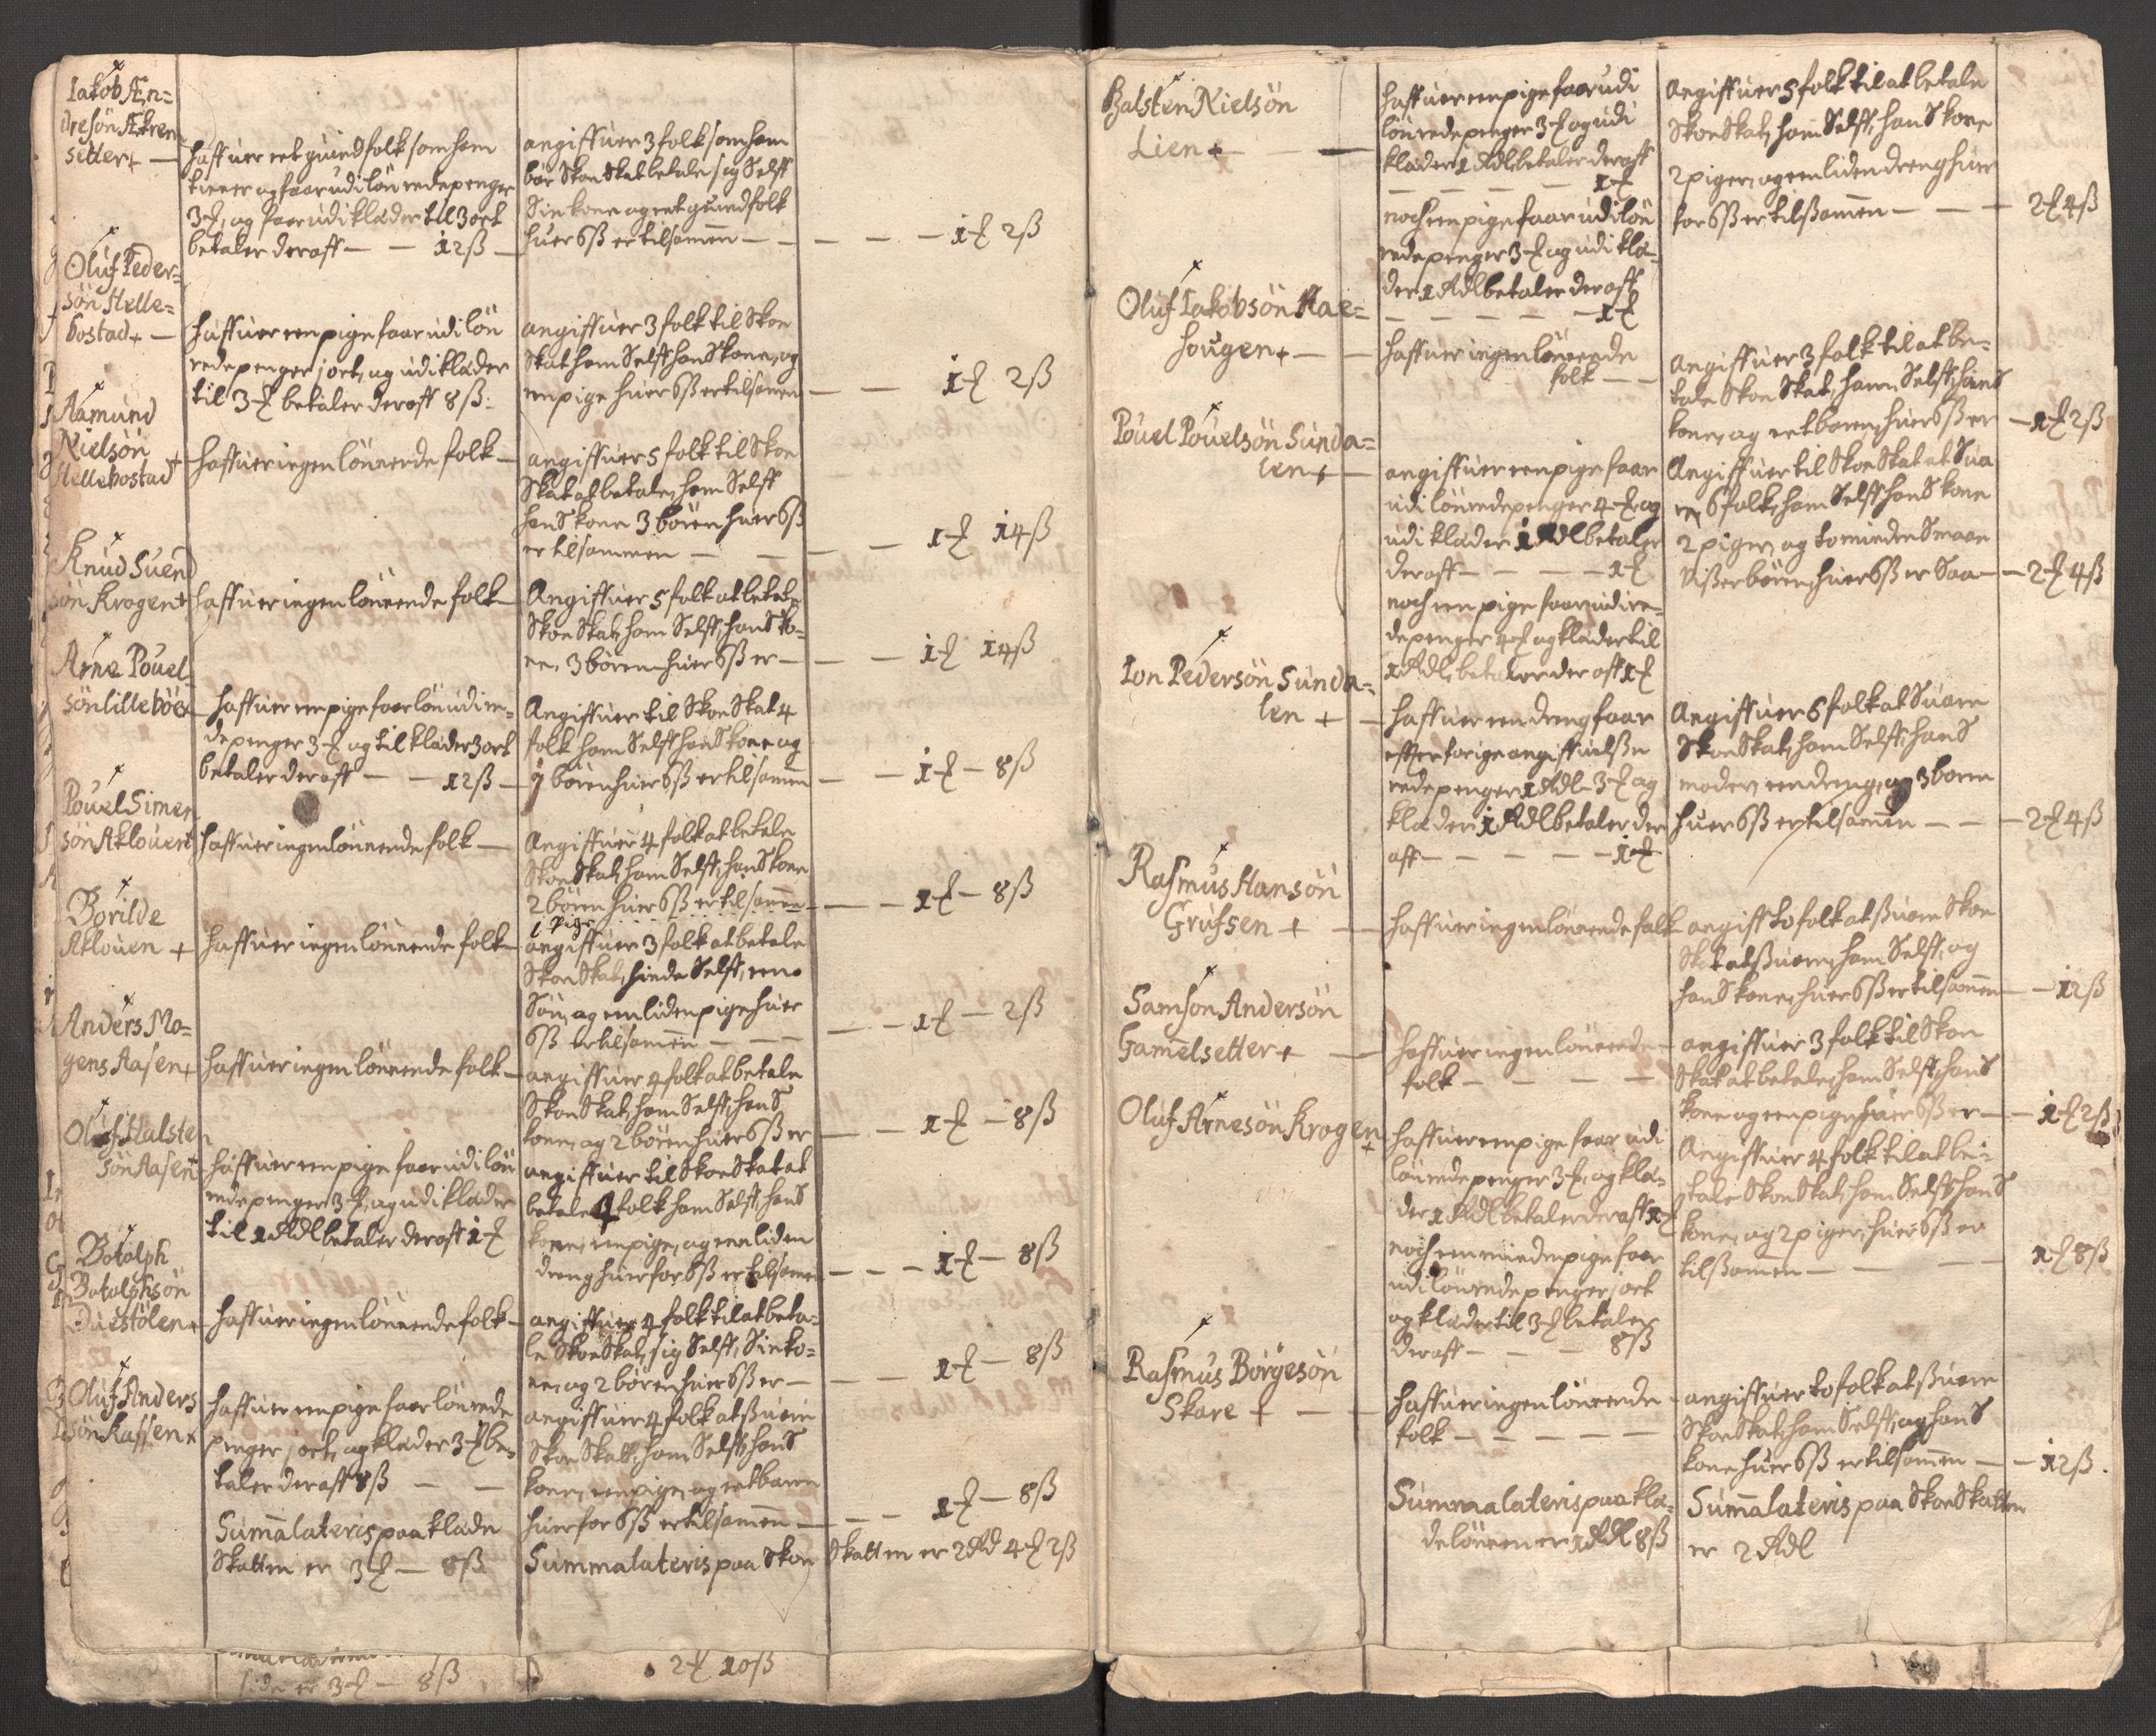 Iakob Æn=
dresön Ækren
setter+ —
haffuer eet quindfolk som ham
tiener og faar udi lön rede penger
3 ₰, og faar udi klæder til 3 ort
betaler deraff — — 12 ß —
angiffuer 3 folk som ham
bör Skoe Skat betale sig Selff
Sin kone og eet quindfolk
huer 6 ß er tilsamen — — — — 1 ₰ 2 ß
Oluf Peder=
sön Helle=
bostad+ —
haffuer een pige faar udi lön
rede penger j ort, og udi klæder
til 3 ₰ betaler deraff 8 ß.
angiffuer 3 folk til Skoe
Skat ham Selff hans kone, og
een pige huer 6 ß er tilsamen — — 1 ₰ 2 ß
Aamund
Nielsön +
Hellebostad
haffuer ingen lönnende folk —
angiffuer 5 folk til Skoe
Skat at betale, ham Selff
hans kone 3 bören huer 6 ß
er tilsammen — — — — 1 ₰ 14 ß
Knud Suend
sön Krogen+
haffuer ingen lönnende folk —
Angiffuer 5 folk at betale
Skoe Skat, ham Selff, hans ko=
ne, 3 bören huer 6 ß er — — — 1 ₰ 14 ß
Arne Pouel
sön lilleböe+
haffuer een pige faar lön udi re=
de penger 3 ₰ og til klæder 3 ort
betaler deraff — — 12 ß —
Angiffuer til Skoe Skat 4
folk ham Selff hans kone og
bören huer 6 ß er tilsamen — — 1 ₰ — 8 ß
Pouel Simen
sön Aklouen+
haffuer ingen lönnende folk —
Angiffuer 4 folk at betale
Skoe Skat, ham Selff, hans kone
2 bören huer 6 ß er tilsamen — — 1 ₰ — 8 ß
Borilde
Aklouen +
haffuer ingen lönnende folk —
1 Pige
angiffuer 3 folk at betale
Skoe Skat, hinde Selff, een
Sön, og een liden pige huer
6 ß er tilsamen — — — — — 1 ₰ — 2 ß
Anders Mo=
gens Aasen+
haffuer ingen lönnende folk —
angiffuer 4 folk at betale
Skoe Skat, ham Selff, hans
kone, og 2 bören huer 6 ß er — — 1 ₰ — 8 ß
Oluf Halsten
sön Aasen+
haffuer een pige faar udi lön
rede penger 3 ₰, og udi klæder
til 1 Rdl betaler deraff 1 ₰
angiffuer til Skoe Skat at
betale 4 folk ham Selff, hans
kone, een pige, og een liden
dreng huer for 6 ß er tilsamen — — — 1 ₰ — 8 ß
Botolph
Botolphsön
Duestölen+
haffuer ingen lönnende folk —
angiffuer 4 folk til at beta=
le Skoe Skat, sig Selff, Sin ko=
ne, og 2 bören huer 6 ß er — — — 1 ₰ — 8 ß
Oluf Anders
sön Raffsen+
haffuer een pige faar lön rede
penger j ort, og klæder 3 ₰ be=
taler deraff 8 ß — —
angiffuer 4 folk at ßuare
Skoe Skatt, ham Selff, hans
kone, een pige, og eet baren
huer for 6 ß er tilsamen — — — 1 ₰ — 8 ß
Summa lateris paa klæde
Skatten er 3 ₰ — 8 ß
Summa lateris paa Skoe Skatten er 2 Rd 4 ₰ 2 ß
side er 3 ₰ — 8 ß
2 ₰ 10 ß
Halsten Nielsön
Lien+ —
haffuer een pige faar udi
lön rede penger 3 ₰ og udi
klæder 1 Rdl betaler deraff
— — — — — 1 ₰
noch een pige faar udi lön
rede penger 3 ₰ og udi klæ=
der 1 Rdl betaler deraff
— — — — — 1 ₰
Angiffuer 5 folk til at betale
Skoe Skat, ham Selff, hans kone
2 piger, og een liden dreng huer
for 6 ß er tilßamen — — — 2 ₰ 4 ß
Oluf Iakobsön Aae=
hougen+ —
haffuer ingen lönnende
folk — —
Angiffuer 3 folk til at be=
tale Skoe Skat, ham Selff, hans
kone, og eet baren, huer 6 ß er — 1 ₰ 2 ß
Pouel Pouelsön Sunda=
len+ —
angiffuer een pige faar
udi lön rede penger 4 ₰ og
udi klæder 1 Rdl betaler
deraff — — — — 1 ₰
noch een pige faar udi re=
de penger 4 ₰ og klæder til
1 Rdl, betaler deraff 1 ₰
Angiffuer til Skoe Skat at Sua
re 6 folk, ham Selff hans kone
2 piger, og to minder Smaae
bören, huer 6 ß er Saa — 2 ₰ 4 ß
Ion Pedersön Sunda=
len + —
haffuer een dreng faar
effter forige angiffuelße
rede penger 1 Rdl 3 ₰ og
klæder 1 Rdl betaler der
aff — — — — — 1 ₰
Angiffuer 6 folk at Suare
Skoe Skat, ham Selff, hans
moder, een dreng, og 3 boren
huer 6 ß er tilsamen — — — 2 ₰ 4 ß
Rasmus Hansön
Gruhsen + —
haffuer ingen lönnende folk
angiff to folk at ßuare Skoe
Skat at ßuare, ham Selff, og
hans kone, huer 6 ß er tilsamen — 12 ß
Samson Andersön
Gamelsetter+ —
haffuer ingen lönnende
folk — — — —
angiffuer 3 folk til Skoe
Skat at betale, ham Selff, hans
kone og een pige huer 6 ß er — — 1 ₰ 2 ß
Oluf Arnesön Krogen
+
haffuer een pige faar udi
lön rede penger 3 ₰, og klæ=
der 1 Rdl betaler deraff 1 ₰
noch een minder pige faar
udi lön rede penger j ort
og klæder til 3 ₰ betaler
deraff — — — 8 ß
Angiffuer 4 folk til at be=
tale Skoe Skat, ham Selff, hans
kone, og 2 piger, huer 6 ß er
tilßamen — — — 1 ₰ 8 ß
Rasmus Börgesön
Skare + — —
haffuer ingen lönnende
folk — — — — —
angiffuer to folk at ßuare
Skoe Skat, ham Selff, og hans
kone huer 6 ß er tilsamen — — 12 ß.
Summa lateris paa klæ=
de lönnen er 1 Rdl 8 ß
Summa lateris paa Skoe Skatten
er 2 Rdl